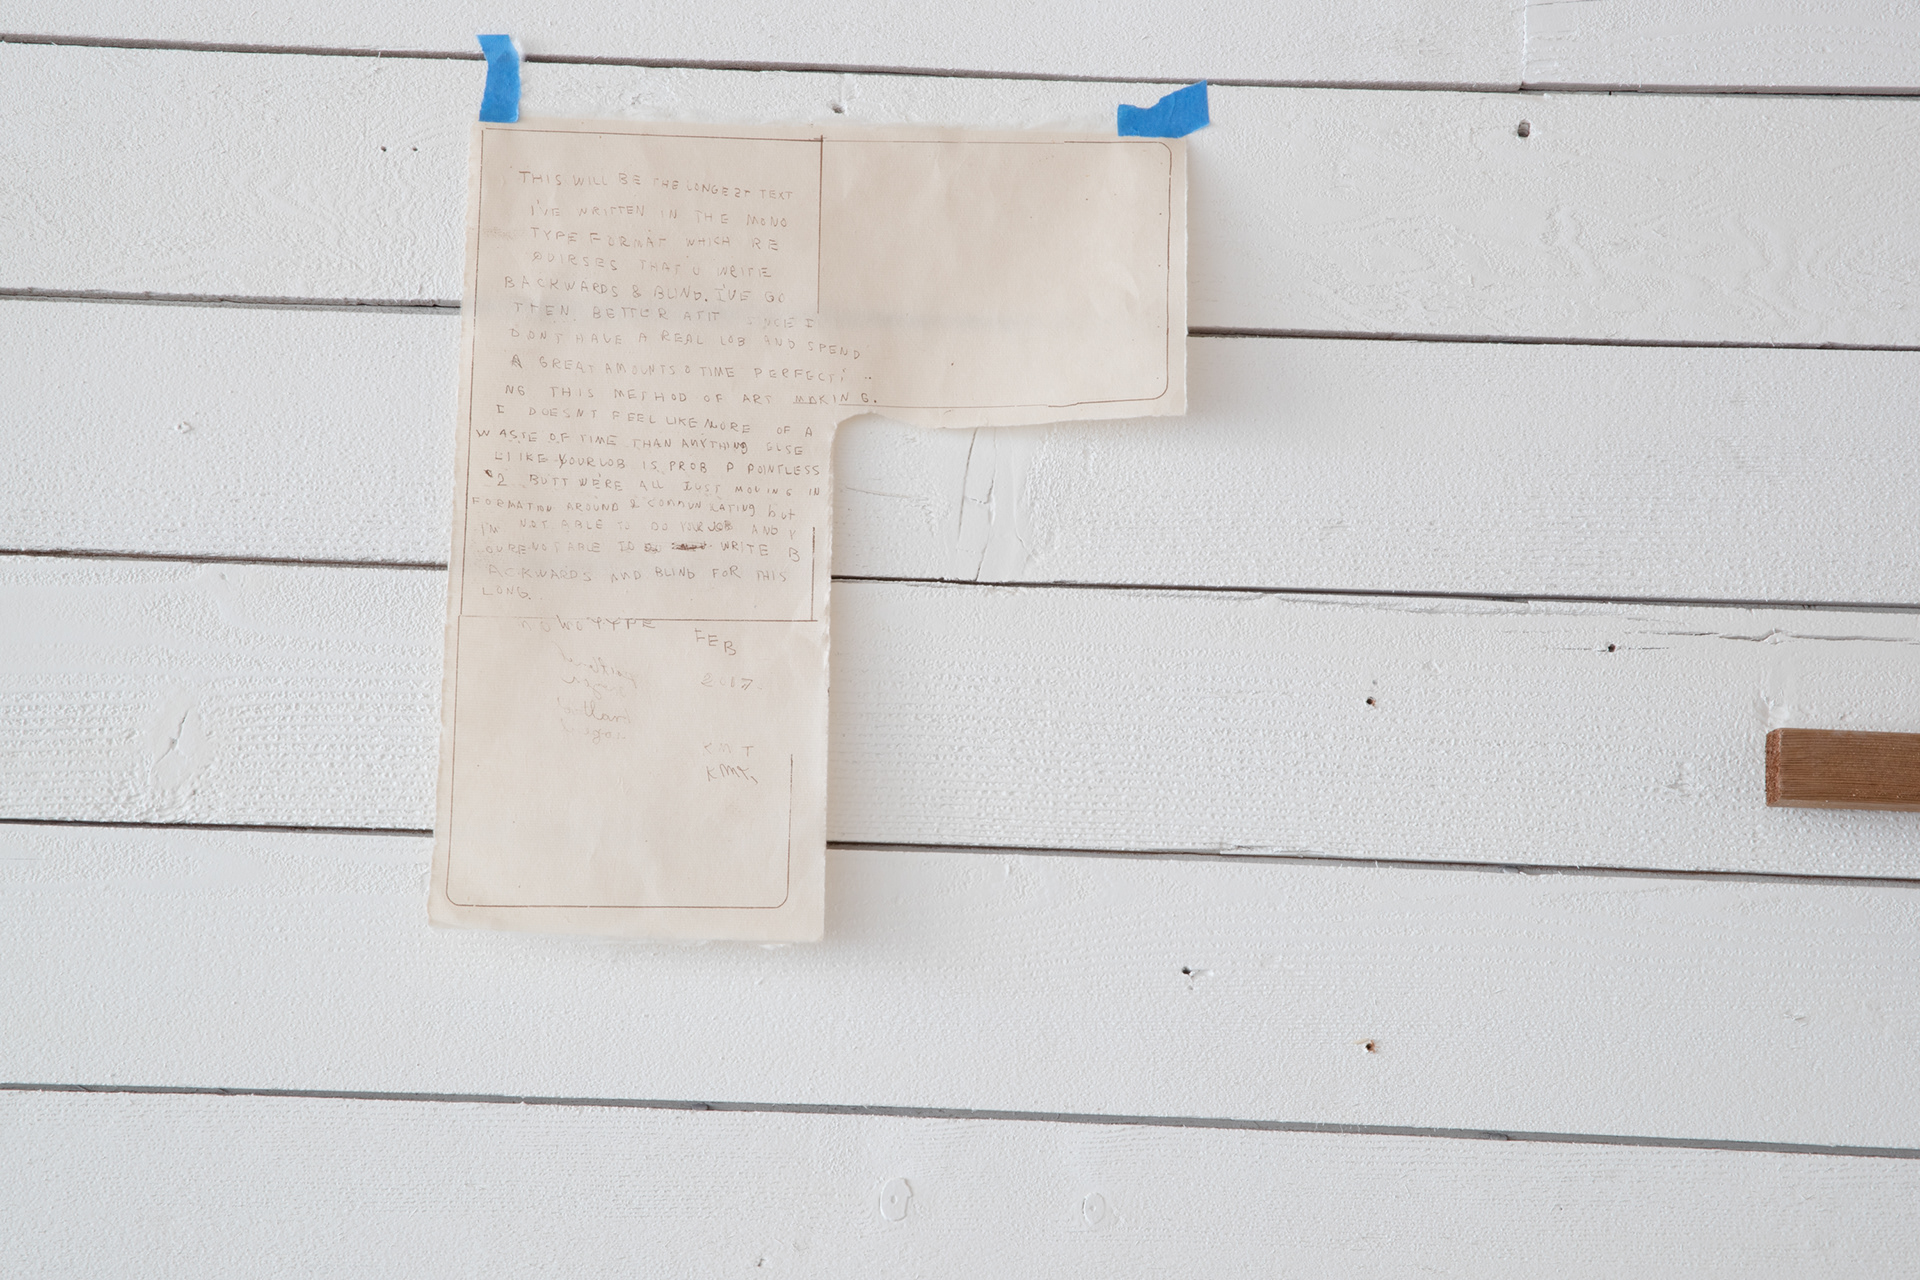 THIS WILL BE THE LONGEST TEXT
I'VE WRITTEN IN THE MONO
TYPE FORMAT WHICH RE
QUIRSES THAT U WRITE
BACKWARDS & BLIND. I'VE GO
TTEN BETTER ATIT SINCE I
DON'T HAVE A REAL LOB AND SPEND
A GREAT AMOUNTS O TIME PERFECTI
NG THIS METHOD OF ART MAKING.
I DOESNT FEEL LIKE MORE OF A
WASTE OF TIME THAN ANYTHING ELSE
LIIKE YOUR LOB IS PROB P POINTLESS
2 BUTT WE'RE ALL JUST MOVING IN
FORMATION AROUND & COMMUN but
I'M NOT ABLE TO DO YOUR JOB AND Y
OURE NOT ABLE TO WRITE B
ACKWARDS AND BLIND FOR THIS
LONG.
MONOTYPE
FEB
2017
KMT
KMT